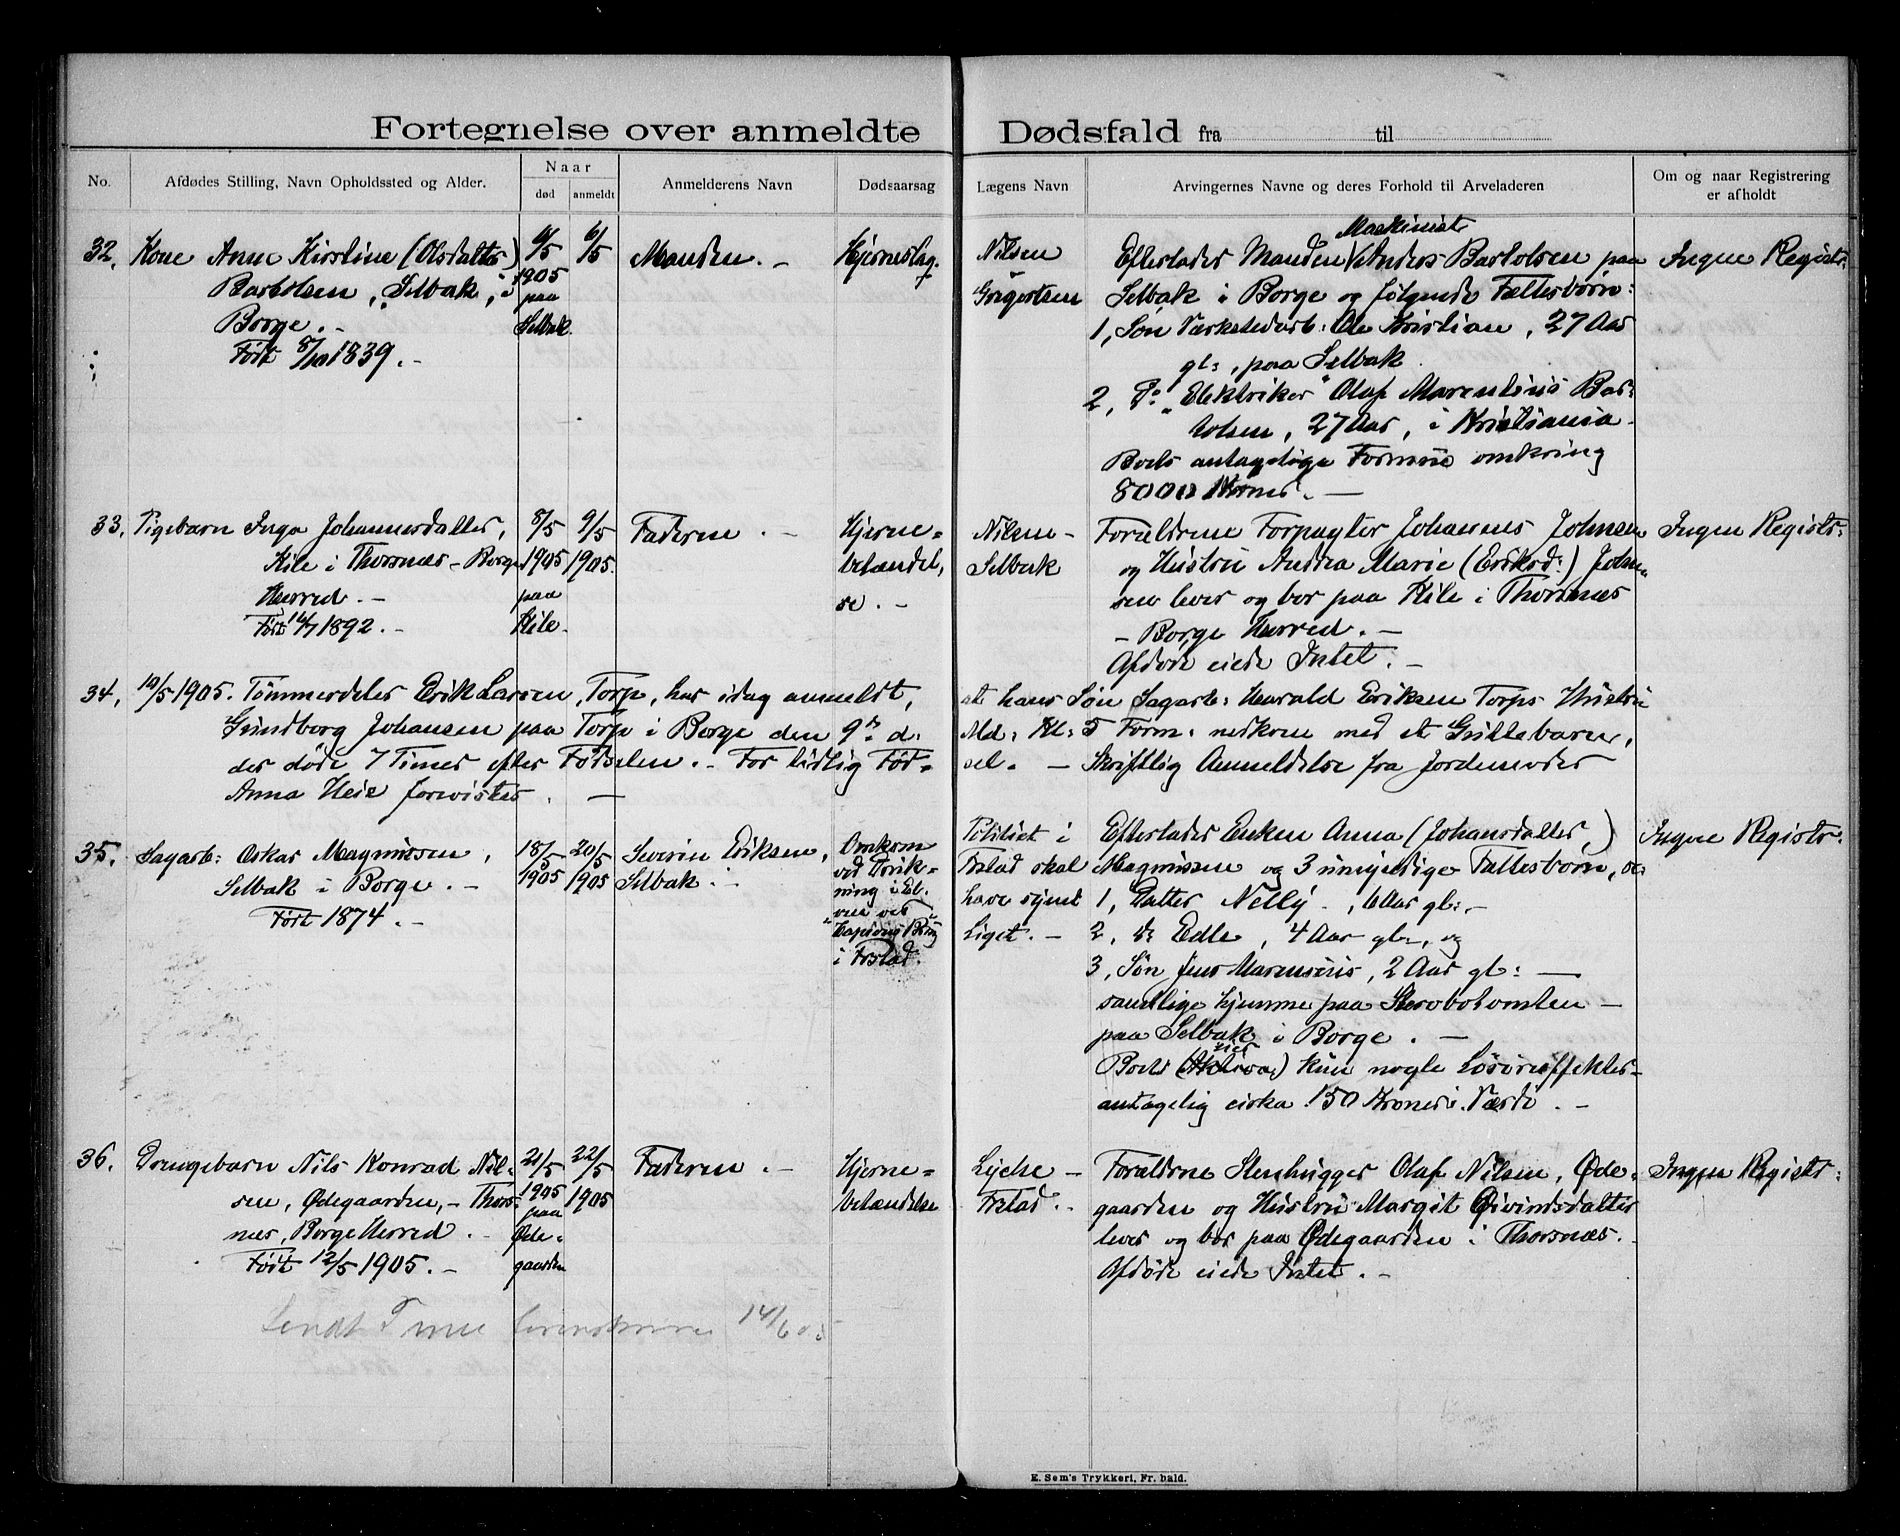 Fortegnelse over anmeldte Dødsfald fra til
No.
Afdødes Stilling, Navn Opholdssted og Alder.
Naar
død
anmeldt
Anmelderens Navn
Dødsaarsag
Lægens Navn
Arvingernes Navne og deres Forhold til Arveladeren
Om og naar Registrering
er afholdt
32.
Kone Anne Kirstine (Olsdatter)
Bartolsen, Selbak, i
Borge. -
Født 8/10 1839. -
6/5
1905
paa
Selbak.
6/5
Manden. -
Hjerneslag.
Nilsen
Maskinist
Efterlader Manden Anders Bartolsen paa
Selbak i Borge og følgende Fællesbørn:
1, Søn Værkstedarb: Ole Kristian, 27 Aar
gl:, paa Selbak
2, Do "Elektriker" Olaf Marentius Bar=
tolsen, 27 Aar, i Kristiania.
Boets antagelige Formue omkring
8000 Kroner. -
Ingen Registr:
33.
Pigebarn Inga Johannesdatter,
Kile i Thorsnæs - Borge
Herred. -
Født 1892. -
8/5
1905
paa
Kile.
9/5
1905.
Faderen. -
Hjerne=
betændel,
se. -
Nilsen -
Selbak
Forældrene Forpagter Johannes Johnsen
og Hustru Andrea Marie (Eriksd:) John
sen lever og bor paa Kile i Thorsnæs
- Borge Herred. -
Afdøde eiede Intet. -
Ingen Registr:
34.
10/5 1905. Tømmerdeler Erik Larsen, Torp, har idag anmeldt, at hans Søn Sagarb: Harald Eriksen Torps Hustru
Gundborg Johansen paa Torp i Borge den 9de d: Md: Kl: 5 Form: nedkom med et Guttebarn,
der døde 7 Timer efter Fødselen. - For tidlig Fød=sel. - Skriftlig Anmeldelse fra Jordemoder
Anna Heie forevistes. -
35.
Sagarb: Oskar Magnussen,
Selbak i Borge. -
Født 1874. -
18/5
1905
20/5
1905
Severin Eriksen,
Selbak. -
Omkom
ved Drukning
i El.
ven ved
i Frstad.
Politiet i
Frstad skal
have synet
Liget. -
Efterlader Enken Anna (Johansdatter,)
Magnussen og 3 umyndige Fællesbørn, de:
1, Datter Nelly, 6 Aar gl: -
2, do Edle, 4 Aar gl:, og
3, Søn Jens Marensius, 2 Aar gl: -
samtlige hjemme paa
paa Selbak i Borge. -
Boets kun nogle Løsøreeffekter-
antagelig cirka 150 Kroner i Værdi. -
Ingen Registr:
36.
Drengebarn Nils Konrad Nil=
sen, Ødegaarden, - Thors=
næs, Borge Herred. -
Født 12/5 1905. -
21/5
1905
paa
Øde=
gaarden
22/5
1905
Faderen. -
Hjerne=
betændelse
Lyche -
Frstad. -
Forældrene Stenhugger Olaf Nilsen, Øde=
gaarden og Hustru Margit Øivindsdatter
lever og bor paa Ødegaarden i Thorsnæs.
Afdøde eiede Intet. -
Ingen Registr:
Sendt Tune Sorenskriver 14/6 05
E. Sem's Trykkeri, Fr. hald.